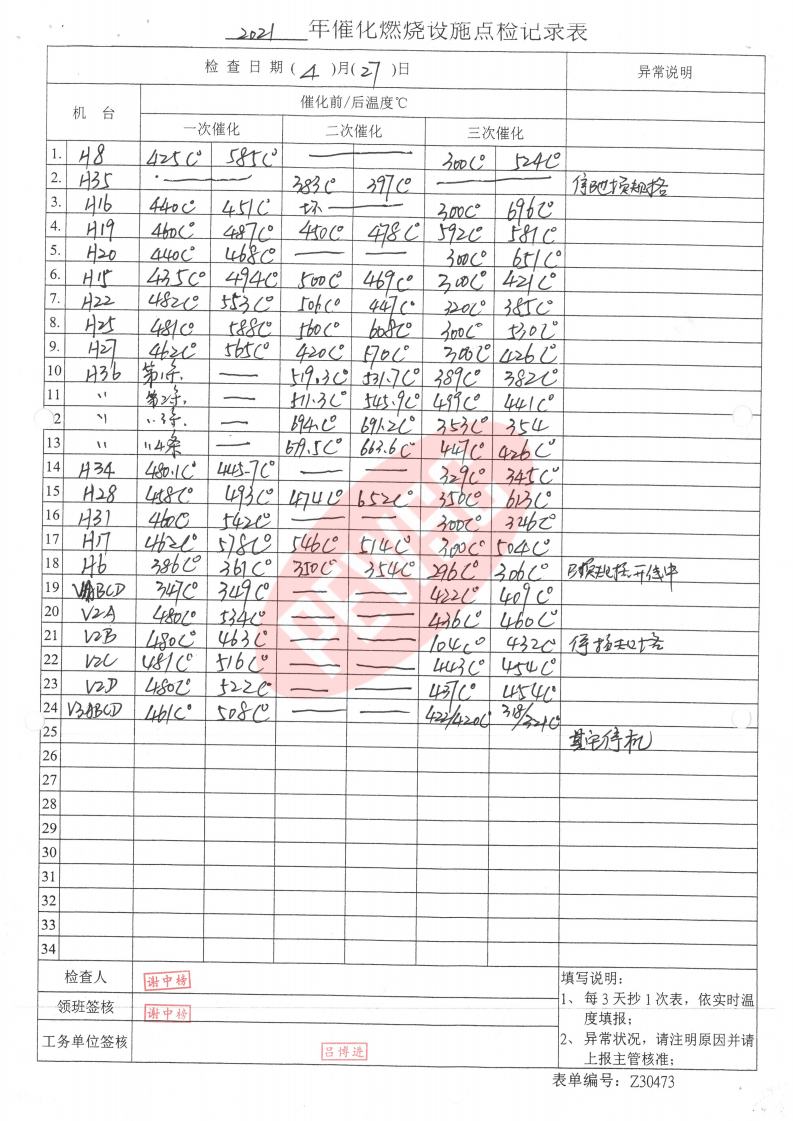 2021 年催化燃烧设施点检记录表
检 查 日 期 ( 4 )月( 27 )日 异常说明
机 台 催化前/后温度℃
一次催化 二次催化 三次催化
1. H8 425C° 585C° —— 300C° 524C°
2. H35 —— 383C° 397C° ——
3. H16 440C° 451C° 坏 —— 300C° 696C°
4. H19 460C° 487C° 450C° 478C° 592C° 581C°
5. H20 440C° 468C° — — 300C° 651C°
6. H15 435C° 494C° 500C° 469C° 300C° 421C°
7. H22 482C° 553C° 506C° 447C° 320C° 385C°
8. H25 481C° 588C° 560C° 608C° 300C° 530C°
9. H27 462C° 565C° 420C° 570C° 300C° 426C°
10 H36 第1条. — 519.3C° 531.7C° 389C° 382C°
11 〃 第2条. — 511.3C° 545.9C° 499C° 441C°
2 〃 〃3条. — 694.1C° 691.2C° 353C° 354
13 〃 〃4条 — 679.5C° 663.6C° 447C° 426C°
14 H34 480.1C° 445.7C° — — 329C° 345C°
15 H28 458C° 493C° 474C° 652C° 350C° 613C°
16 H31 460C° 542C° — — 300C° 346C°
17 H17 462C° 578C° 546C° 514C° 300C° 504C°
18 H6 386C° 361C° 350C° 354C° 296C° 306C°
19 ABCD 347C° 349C° — — 422C° 409C°
20 V2A 480C° 534C° — — 436C° 460C°
21 V2B 480C° 463C° — — 104C° 432C°
22 V2C 481C° 516C° — — 443C° 454C°
23 V2D 480C° 522C° — — 437C° 454C°
24 V3ABCD 461C° 508C° — — 422/420C° 318/321C°
25 其它停机
26
27
28
29
30
31
32
33
34
PEWSC
检查人 谢中榜
领班签核 谢中榜
工务单位签核 吕博进
填写说明:
1、 每 3 天抄 1 次表，依实时温
度填报；
2、 异常状况，请注明原因并请
上报主管核准；
表单编号：Z30473